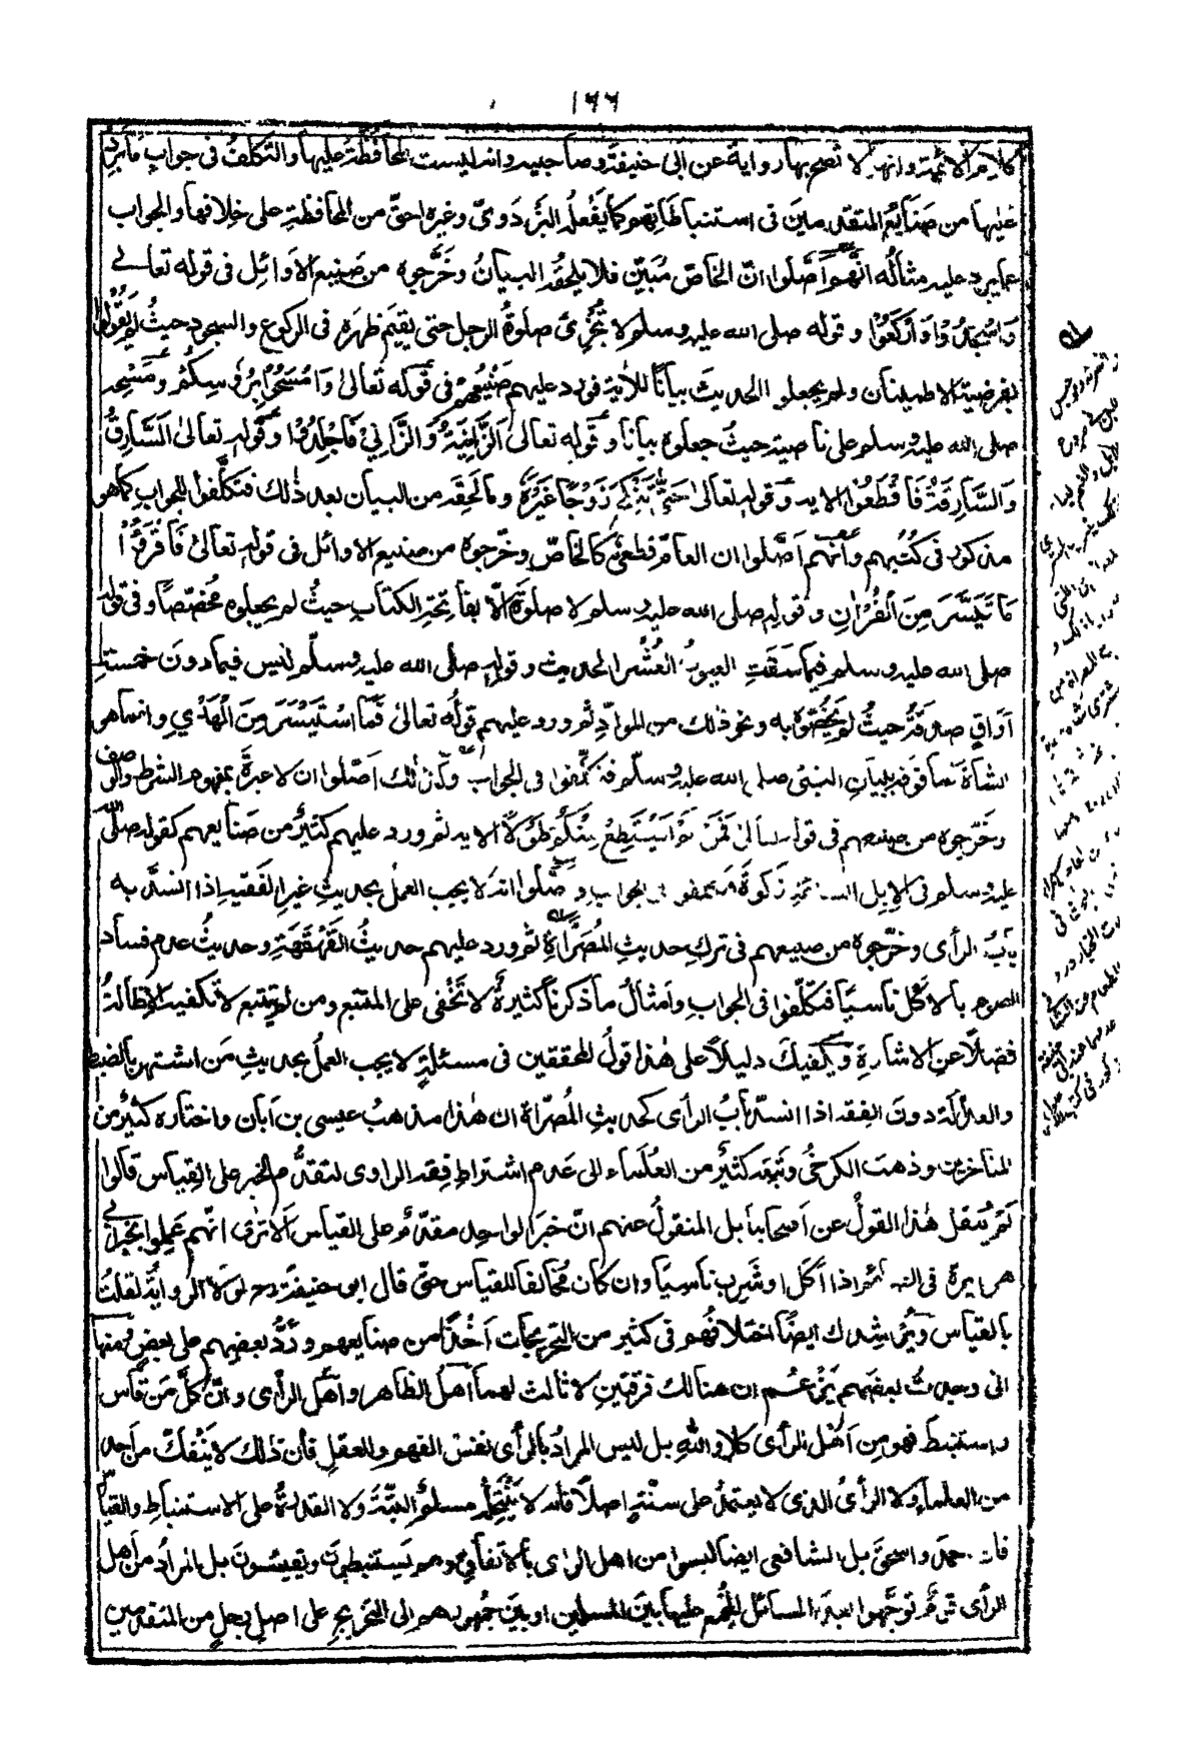 ١٦٦
كلام الائمة وانه لا تصح بها رواية عن ابى حنيفة وصاحبيه وانه ليست المحافظة عليها والتكلف فى جواب ما يرد
عليها من صنايع المتقدمين فى استنباطاتهم كما يفعله البزدوى وغيره احق من المحافظة على خلافها والجواب
عما يرد عليه مثاله انهم اصّلوا ان الخاص مبين فلا يلحقه البيان وخرّجوه من صنيع الاوائل فى قوله تعالى
وَاسْجُدُوا وَارْكَعُوا وقوله صلى الله عليه وسلم لا تجزئ صلوة الرجل حتى يقيم ظهره فى الركوع والسجود حيث لم يقولوا
بفرضية الاطمينان ولم يجعلوا الحديث بيانا للآية فورد عليهم صنيعهم فى قوله تعالى وَامْسَحُوْا بِرُءُوْسِكُمْ ومسحه
صلى الله عليه وسلم على ناصيته حيث جعلوه بيانا وقوله تعالى اَلزَّانِيَةُ وَالزَّانِيْ فَاجْلِدُوْا وقوله تعالى السَّارِقُ
وَالسَّارِقَةُ فَاقْطَعُوْا الاية وقوله تعالى حَتّٰى تَنْكِحَ زَوْجًا غَيْرَهٗ وما لحقه من البيان بعد ذلك فتكلّفوا للجواب كما هو
مذكور فى كتبهم وانهم اصّلوا ان العام قطعى كالخاص وخرّجوه من صنيع الاوائل فى قوله تعالى فَاقْرَءُوْا
مَا تَيَسَّرَ مِنَ الْقُرْاٰنِ وقوله صلى الله عليه وسلم لا صلوة الا بفاتحة الكتاب حيث لم يجعلوه مخصّصا وفى قوله
صلى الله عليه وسلم فيما سقت العيون العشر الحديث وقوله صلى الله عليه وسلم ليس فيما دون خمسة
اواق صدقة حيث لم يخصّوه به ونحو ذلك من المواد ثم ورد عليهم قوله تعالى فَمَا اسْتَيْسَرَ مِنَ الْهَدْيِ وانما هو
الشاة فما فوقه ببيان النبى صلى الله عليه وسلم فتكلّفوا فى الجواب وكذلك اصّلوا ان لا عبرة بمفهوم الشرط والوصف
وخرّجوه من صنيعهم فى قوله تعالى فَمَنْ لَّمْ يَسْتَطِعْ مِنْكُمْ طَوْلًا الاية ثم ورد عليهم كثير من صنايعهم كقوله صلى الله
عليه وسلم فى الابل السائمة زكوة فتكلفوا فى الجواب واصّلوا انه لا يجب العمل بحديث غير الفقيه اذا انسدّ به
باب الرأى وخرّجوه من صنيعهم فى ترك حديث المُصَرّاة ثم ورد عليهم حديث القهقهة وحديث عدم فساد
الصوم بالاكل ناسيا فتكلّفوا فى الجواب وامثال ما ذكرنا كثيرة لا تخفى على المتتبع ومن لم يتتبع لا تكفيه الاطالة
فضلا عن الاشارة ويكفيك دليلا على هذا قول المحققين فى مسئلة لا يجب العمل بحديث من اشتهر بالضبط
والعدالة دون الفقه اذا انسدّ باب الرأى كحديث المُصَرّاة ان هذا مذهب عيسى بن ابان واختاره كثير من
المتأخرين وذهب الكرخى وتبعه كثير من العلماء الى عدم اشتراط فقه الراوى لتقدّم الخبر على القياس قالوا
لم ينقل هذا القول عن اصحابنا بل المنقول عنهم انّ خبر الواحد مقدّم على القياس الا ترى انّهم عملوا بخبر ابى
هريرة فى الصائم اذا اكل او شرب ناسيا وان كان مخالفا للقياس حتى قال ابو حنيفة رحـ لولا الرواية لقلت
بالقياس ويرشدك ايضا اختلافهم فى كثير من التخريجات اخذا من صنايعهم وردّ بعضهم على بعض ومنها
انى وجدت بعضهم يزعم ان هنالك فرقتين لا ثالث لهما اهل الظاهر واهل الرأى وانّ كلّ من قاس
واستنبط فهو من اهل الرأى كلا والله بل ليس المراد بالرأى نفس الفهم والعقل فان ذلك لا ينفكّ من احد
من العلماء ولا الرأى الذى لا يعتمد على سنّة اصلا فانه لا ينتحله مسلم البتّة ولا القدرة على الاستنباط والقياس
فان احمد واسحق بل الشافعى ايضا ليسوا من اهل الرأى بالاتفاق وهم يستنبطون ويقيسون بل المراد من اهل
الرأى قوم توجّهوا بعد المسائل المجمع عليها بين المسلمين او بين جمهورهم الى التخريج على اصل رجل من المتقدمين